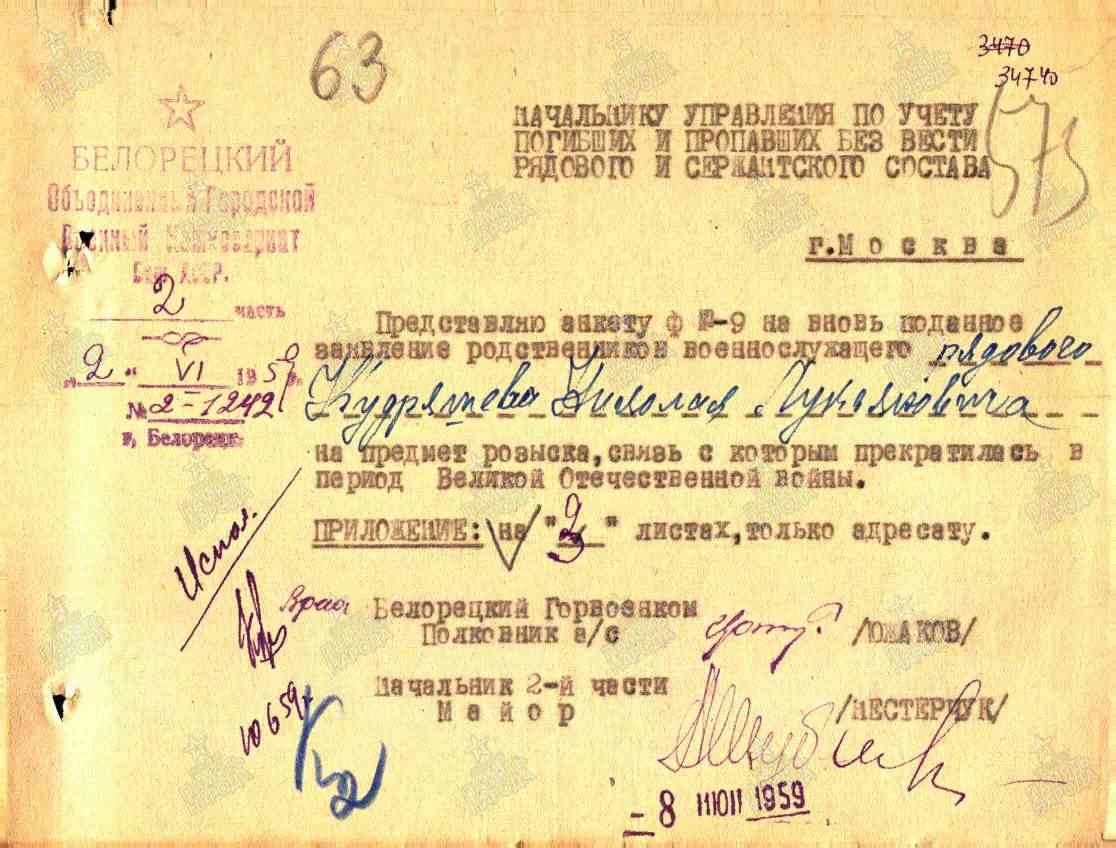 63
3470
34740
573
НАЧАЛЬНИКУ УПРАВЛЕНИЯ ПО УЧЕТУ
ПОГИБШИХ И ПРОПАВШИХ БЕЗ ВЕСТИ
РЯДОВОГО И СЕРЖАНТСКОГО СОСТАВА
г.Москва
БЕЛОРЕЦКИЙ
Объединенный Городской
Военный Комиссариат
Баш. АССР.
2 часть
"2" VI 1959 г.
№ 2-1242
г. Белорецк
Представляю анкету ф №-9 на вновь поданное
заявление родственников военнослужащего рядового
Кудряшева Николая Лукьяновича
на предмет розыска,связь с которым прекратилась в
период Великой Отечественной войны.
ПРИЛОЖЕНИЕ: на "2" листах,только адресату.
Испол.
Белорецкий Горвоенком
Полковник а/с /ЮЖАКОВ/
Начальник 2-й части
Майор /НЕСТЕРЧУК/
10 6 59
- 8 ИЮН 1959